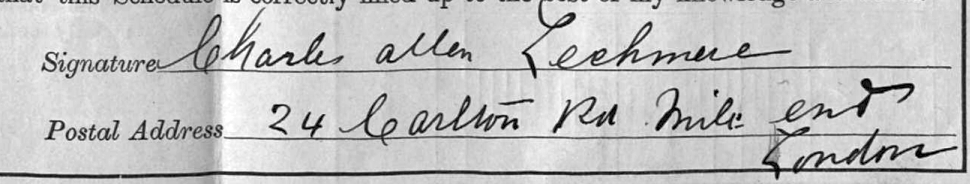 that this Schedule is correctly filled up to the best of my knowledge
Signature Charles allen Lechmere
Postal Address 24 Carlton Rd Mile end
London